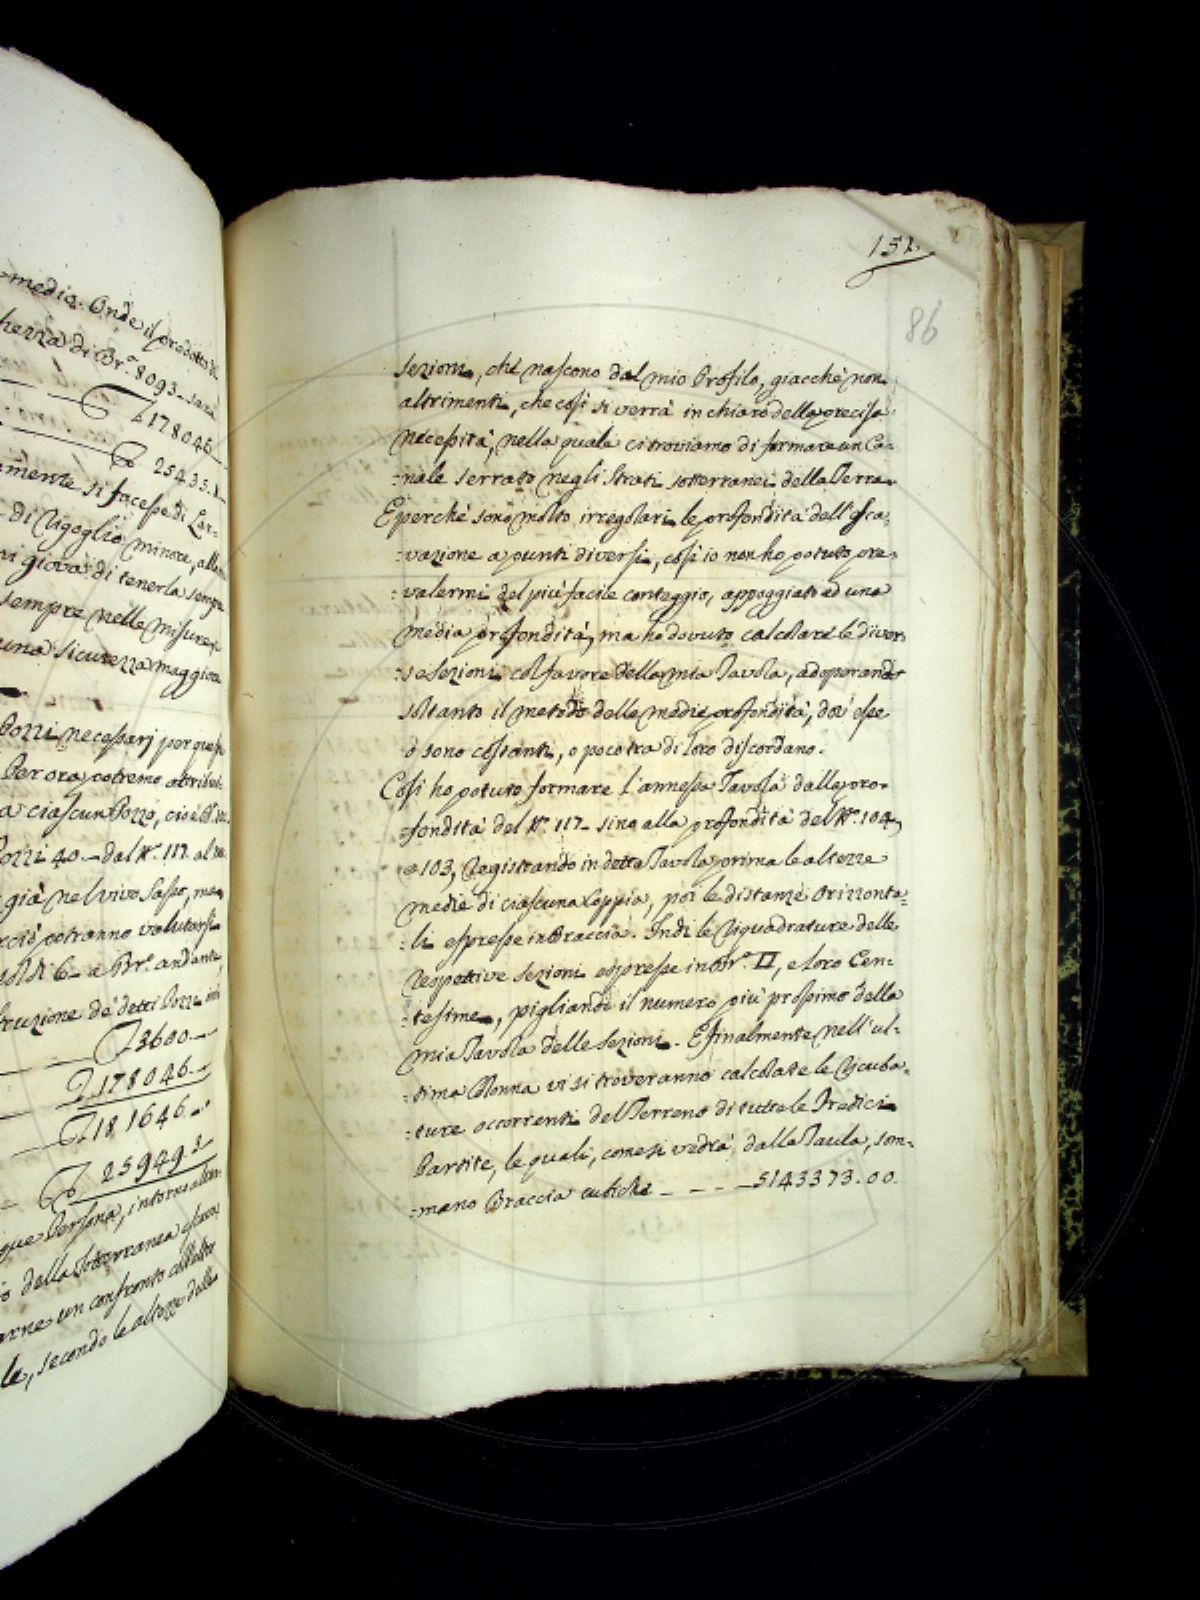 media. Onde il prodotto di
hezza di Br.ª 8093 sarà
178046
25435.1
mente si facesse di Lar-
di Rigoglio minore, alla
vi giova di tenerla sempre
sempre nelle misure
una sicurezza maggiore
Pozzi necessarj per que
Per ora potremo attribui-
a ciascun Pozzo, cioè
Pozzi 40 dal N.º 117 al
già nel vivo Sasso, ma
rciò potranno valutarsi
soldi 6 a Br.ª andante,
truzione de' detti Pozzi
3600
178046
181646
25949.3
que Persona, intorno alla
o della Sotterranea escava
arne un confronto all'altro
le, secondo le altezze delle
151.
86
sezioni, che nascono dal mio Profilo, giacchè non
altrimenti, che così si verrà in chiaro della precisa
necessità, nella quale ci troviamo di formare un Ca-
:nale serrato negli Strati sotterranei della Terra.
E perchè sono molto irregolari le profondità dell'Esca-
:vazione a punti diversi, così io non ho potuto pre-
:valermi del più facile conteggio, appoggiato ad una
media profondità, ma ho dovuto calcolare le diver
:se sezioni col favore della mia Tavola, adoperando
soltanto il metodo delle medie profondità, dov' esse
o sono costanti, o poco tra di loro discordano.
Così ho potuto formare l'annessa Tavola dalla pro-
:fondità del N.º 117 sino alla profondità del N.º 104,
e 103, Registrando in detta Tavola prima le altezze
medie di ciascuna Coppia, poi le distanze Orizzonta-
:li espresse in Braccia. Indi le Riquadrature delle
respettive sezioni espresse in Br.ª □, e loro Cen-
:tesime, pigliando il numero più prossimo della
mia Tavola delle sezioni. E finalmente nell'ul-
:tima Colonna vi si troveranno calcolate le Ricuba-
:ture occorrenti del Terreno di tutte le Tredici
Partite, le quali, come si vedrà dalla Taula, som-
:mano Braccia cubiche - - - - 5143373.00.